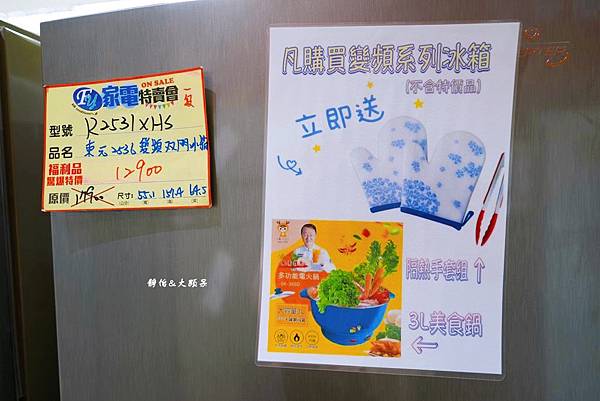 家電特賣會
ON SALE
型號 R2531XHS
品名 東元253L變頻雙門冰箱
福利品
驚爆特價 12900
原價
尺寸: 55.1 157.4 64.5
凡購買變頻系列冰箱
(不含特價品)
立即送
多功能電火鍋
隔熱手套組↑
3L美食鍋
←
靜怡&大顆呆